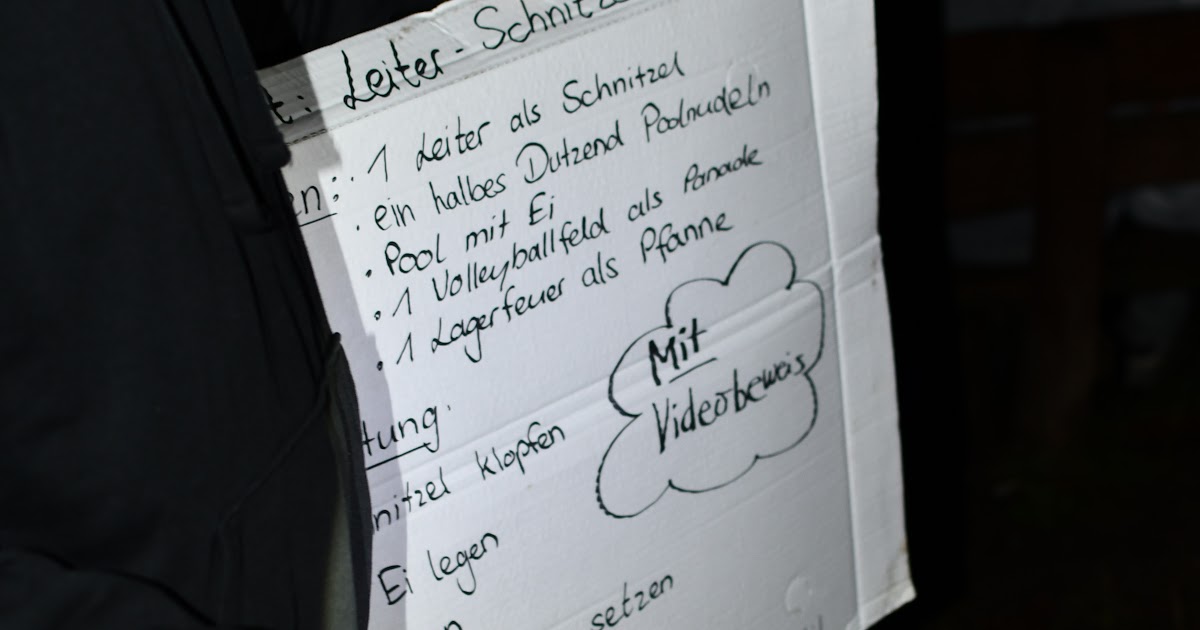 t: Leiter-Schnitze
en: · 1 Leiter als Schnitzel
· ein halbes Dutzend Poolnudeln
· Pool mit Ei
· 1 Volleyballfeld als Panade
· 1 Lagerfeuer als Pfanne
Mit
Videobeweis
tung
nitzel klopfen
Ei legen
setzen